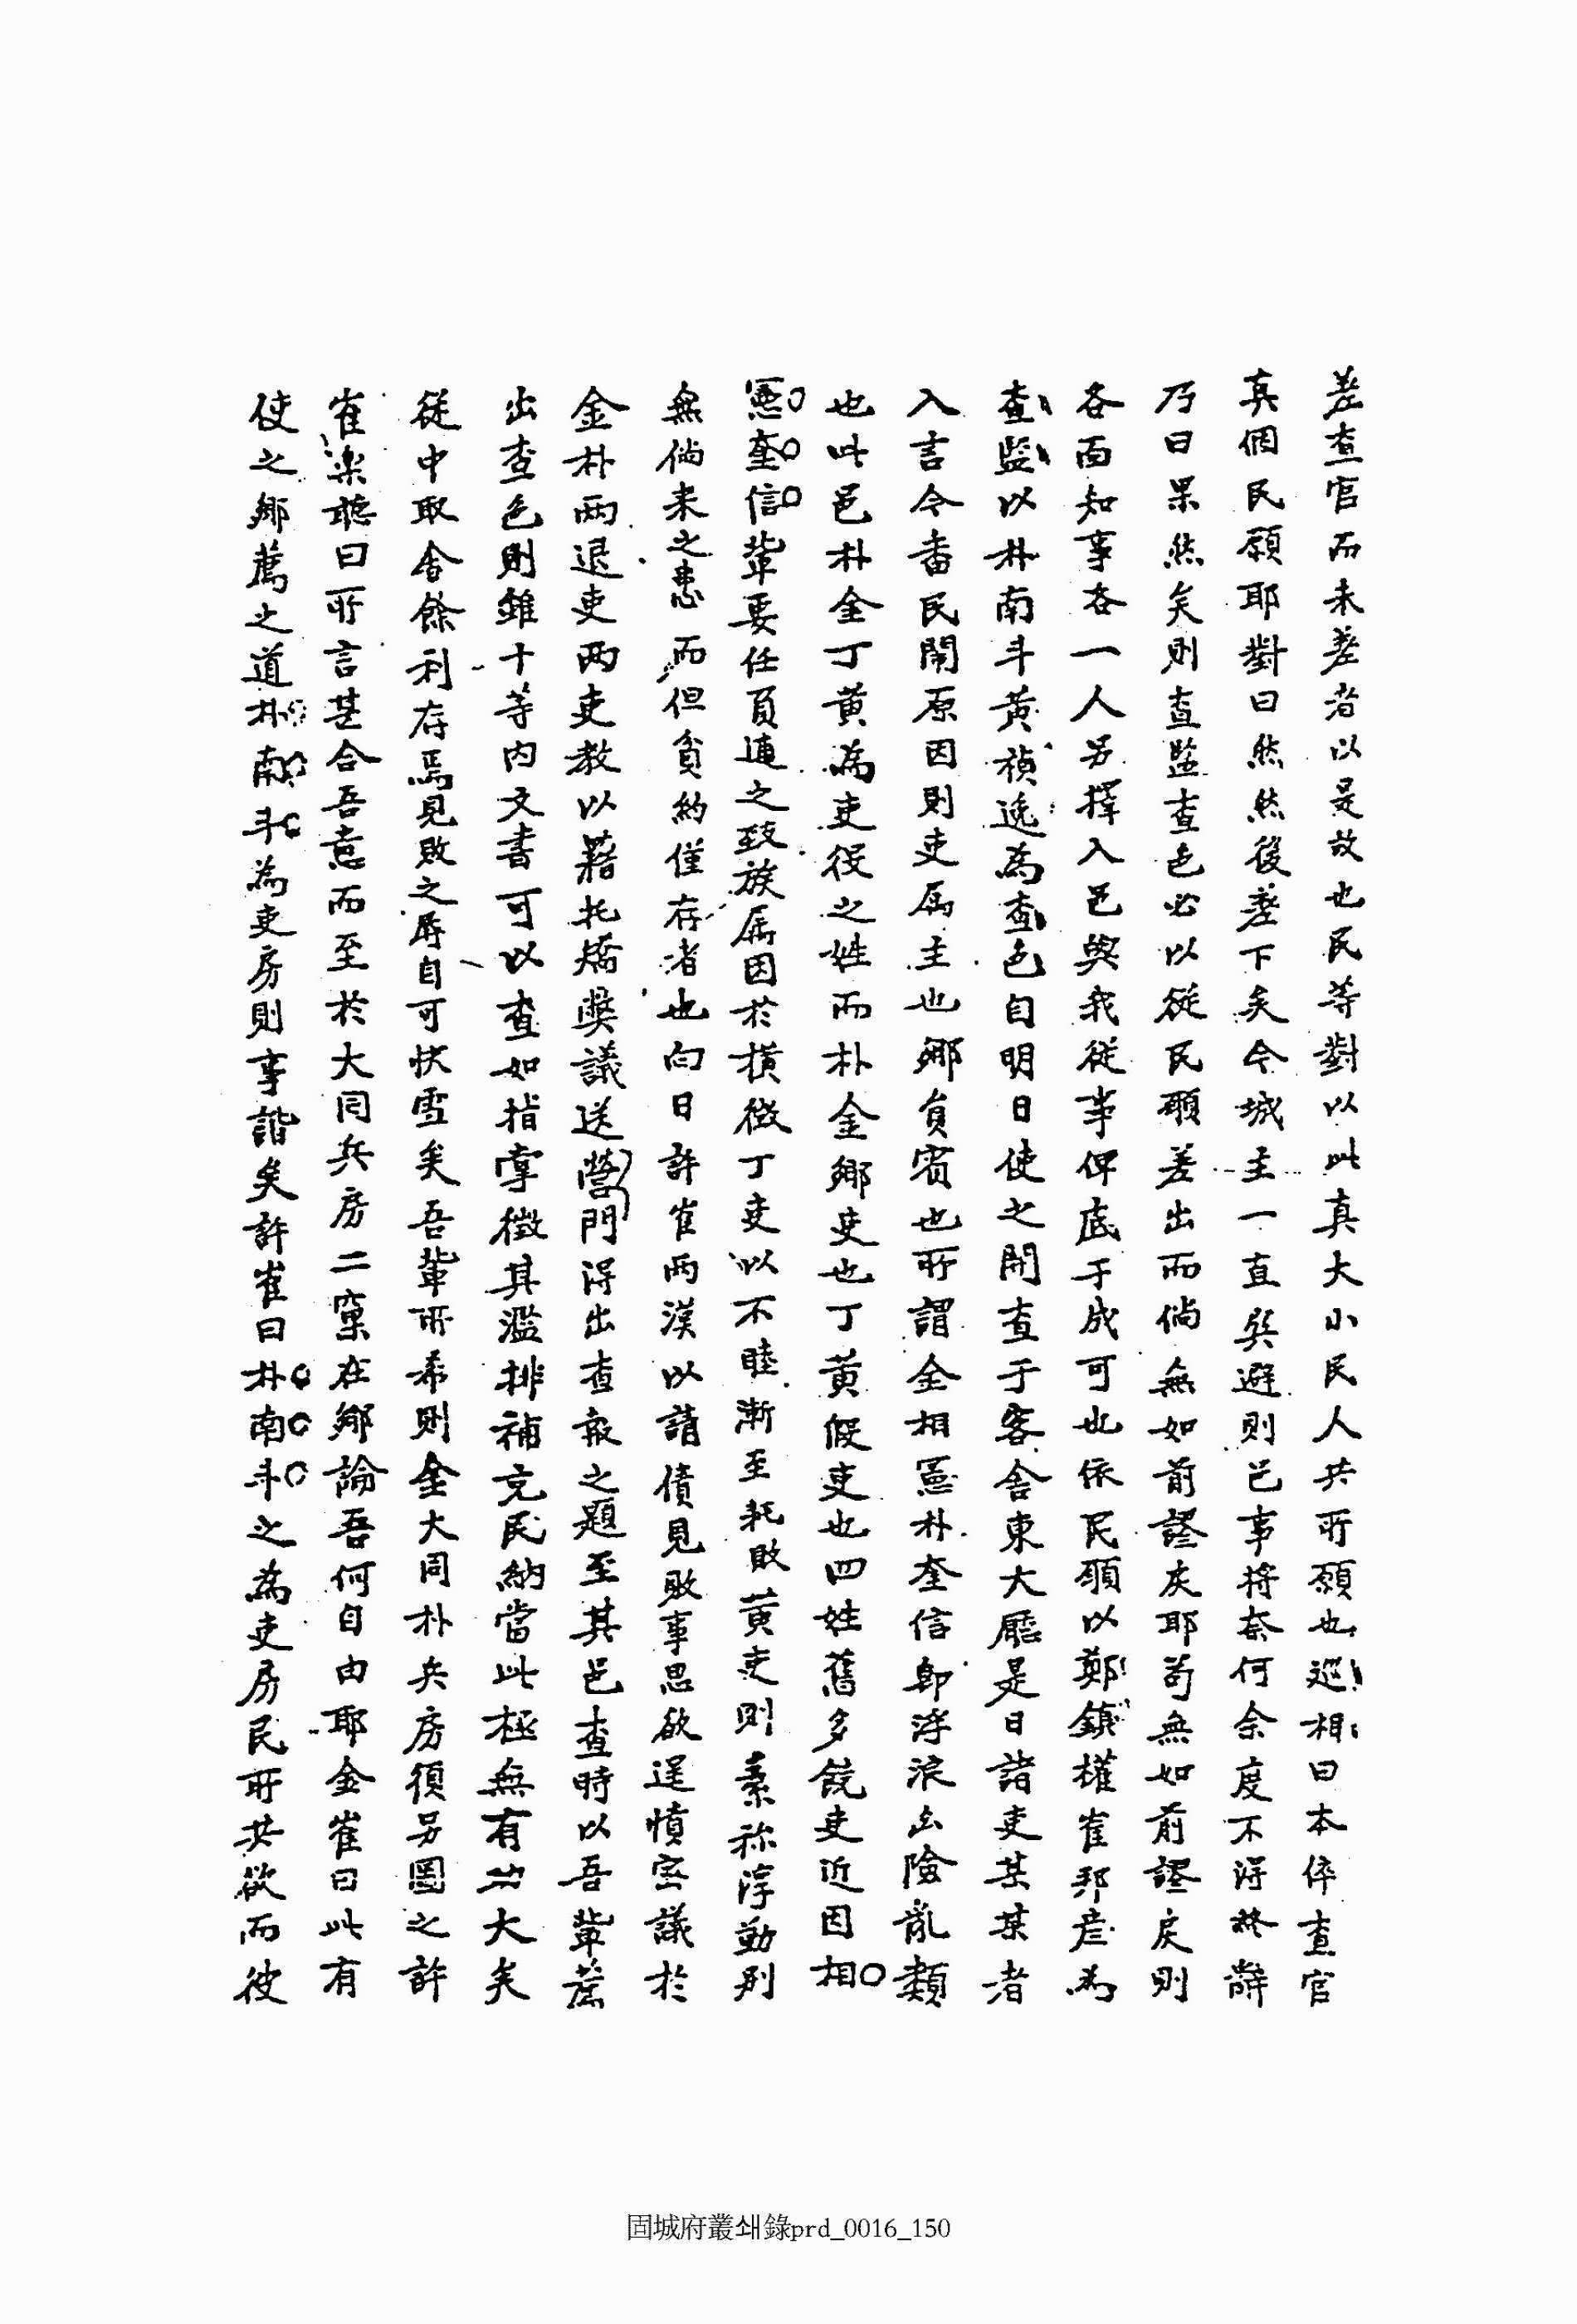 差查官而未差者以是故也民等對以此真大小民人共所願也巡相曰本倅查官
真個民願耶對曰然然後差下矣今城主一直巽避則邑事將奈何余度不得終辭
乃曰果然矣則查監查色必以從民願差出而倘無如前謬戾耶苟無如前謬戾則
各面知事各一人另擇入邑與我從事俾底于成可也依民願以鄭鎭權崔邦彦爲
查監以朴南斗黃禎逸爲查色自明日使之開查于客舍東大廳是日諸吏某某者
入言今番民鬧原因則吏屬主也鄕員賓也所謂金相憲朴奎信卽浮浪出險亂類
也此邑朴金丁黃爲吏役之姓而朴金鄕吏也丁黃假吏也四姓舊多饒吏近因相
憲奎信輩要任負逋之致族屬因於橫徵丁吏以不睦漸至耗敗黃吏則素称淳勤別
無倘來之患而但貧約僅存者也向日許崔兩漢以請債見敗事思欲逞憤密議於
金朴兩退吏兩吏敎以藉托矯弊議送營門得出查報之題至其邑查時以吾輩薦
出查色則雖十等內文書可以查如指掌徵其濫排補充民納當此極無有功大矣
從中取舍餘利存焉見敗之辱自可快雪矣吾輩所希則金大同朴兵房須另圖之許
崔樂聽曰所言甚合吾意而至於大同兵房二窠在鄕論吾何自由耶金崔曰此有
使之鄕薦之道朴南斗爲吏房則事諧矣許崔曰朴南斗之爲吏房民所共欲而彼
固城府叢쇄錄prd_0016_150